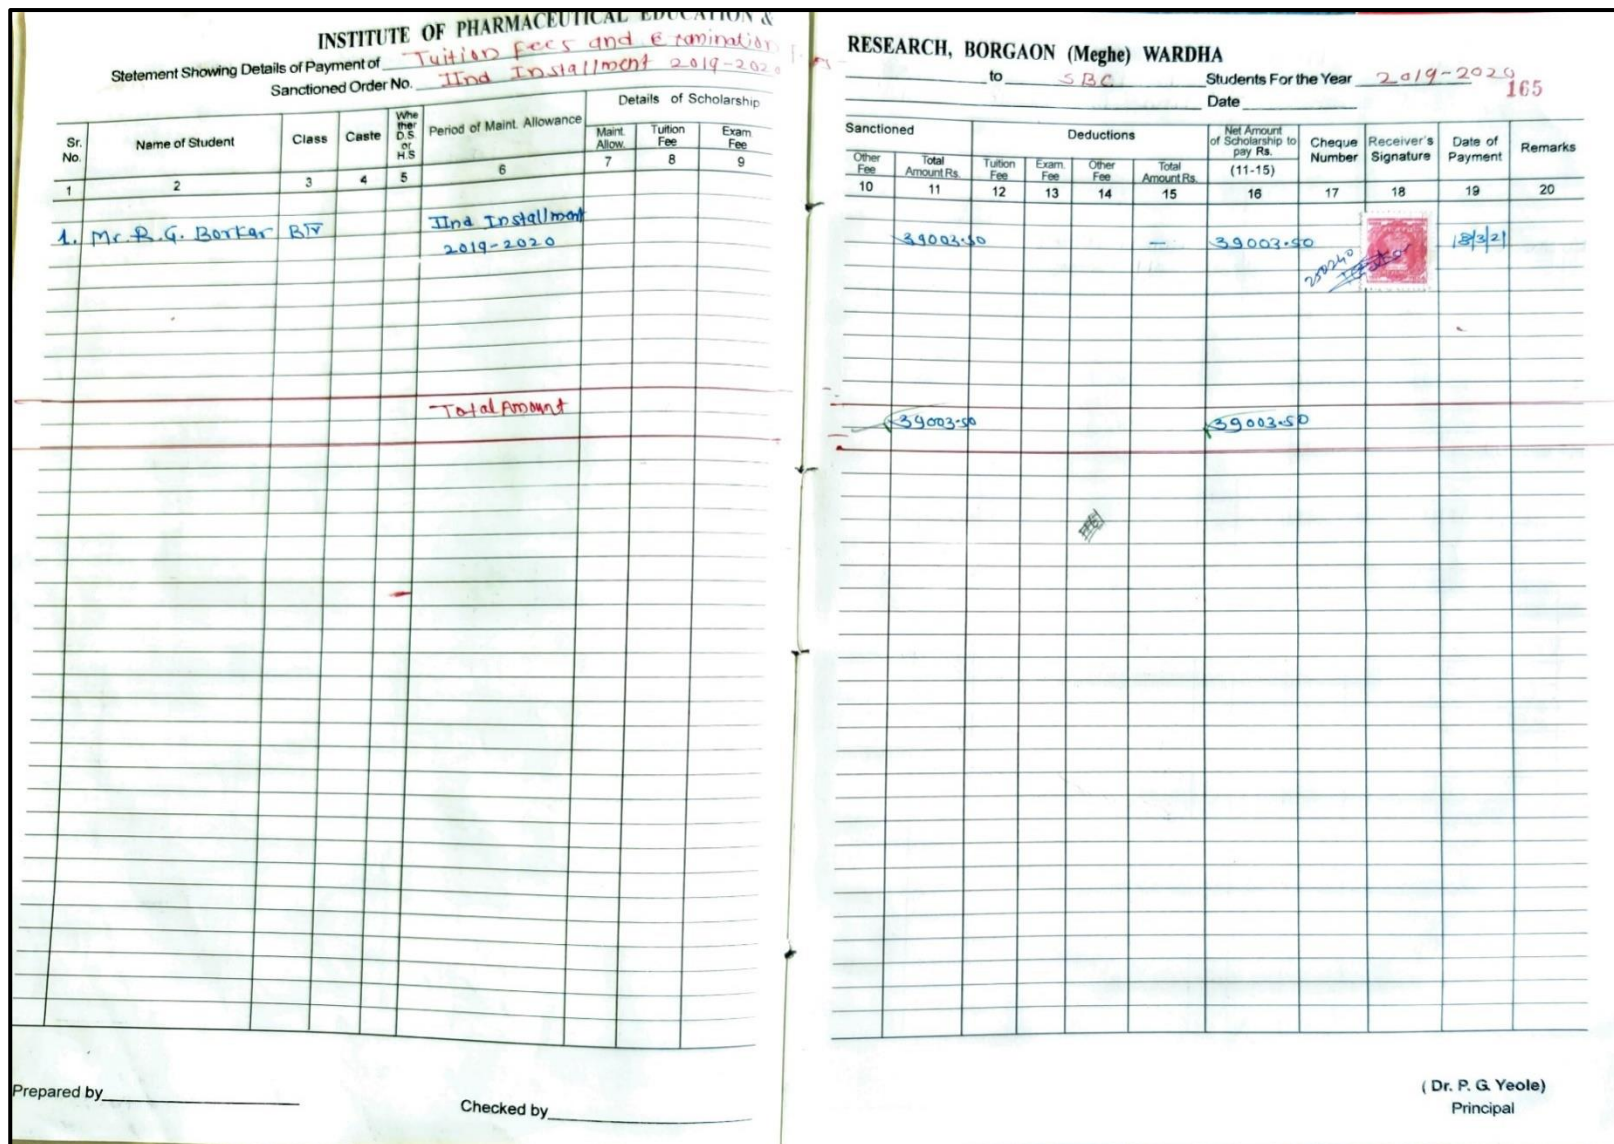 INSTITUTE OF PHARMACEUTICAL EDUCATION &
Stetement Showing Details of Payment of Tuition Fees and Examination
Sanctioned Order No. IInd Installment 2019-2020
Sr. No.
Name of Student
Class
Caste
Whe ther D.S. or H.S
Period of Maint. Allowance
Details of Scholarship
Maint. Allow.
Tuition Fee
Exam Fee
1 2 3 4 5 6 7 8 9
1. Mr. R. G. Borkar B IV IInd Installment
2019-2020
Total Amount
Prepared by
Checked by
RESEARCH, BORGAON (Meghe) WARDHA
to SBC Students For the Year 2019-2020
165
Date
Sanctioned
Other Fee
Total Amount Rs.
Deductions
Tuition Fee
Exam. Fee
Other Fee
Total Amount Rs.
Net Amount of Scholarship to pay Rs. (11-15)
Cheque Number
Receiver's Signature
Date of Payment
Remarks
10 11 12 13 14 15 16 17 18 19 20
39003.50 — 39003.50 18/3/21
250240
39003.50 39003.50
( Dr. P. G. Yeole)
Principal